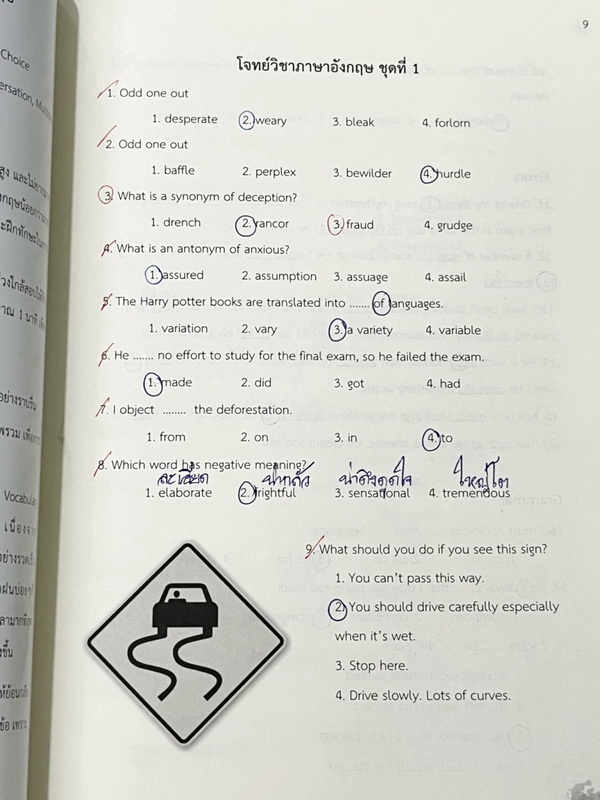 9
Choice
โจทย์วิชาภาษาอังกฤษ ชุดที่ 1
1. Odd one out
1. desperate 2. weary 3. bleak 4. forlorn
2. Odd one out
1. baffle 2. perplex 3. bewilder 4. hurdle
3. What is a synonym of deception?
1. drench 2. rancor 3. fraud 4. grudge
4. What is an antonym of anxious?
1. assured 2. assumption 3. assuage 4. assail
5. The Harry potter books are translated into ....... of languages.
1. variation 2. vary 3. a variety 4. variable
6. He ....... no effort to study for the final exam, so he failed the exam.
1. made 2. did 3. got 4. had
7. I object ........ the deforestation.
1. from 2. on 3. in 4. to
8. Which word has negative meaning?
ละเอียด น่ากลัว น่าดึงดูดใจ ใหญ่โต
1. elaborate 2. frightful 3. sensational 4. tremendous
9. What should you do if you see this sign?
1. You can't pass this way.
2. You should drive carefully especially
when it's wet.
3. Stop here.
4. Drive slowly. Lots of curves.